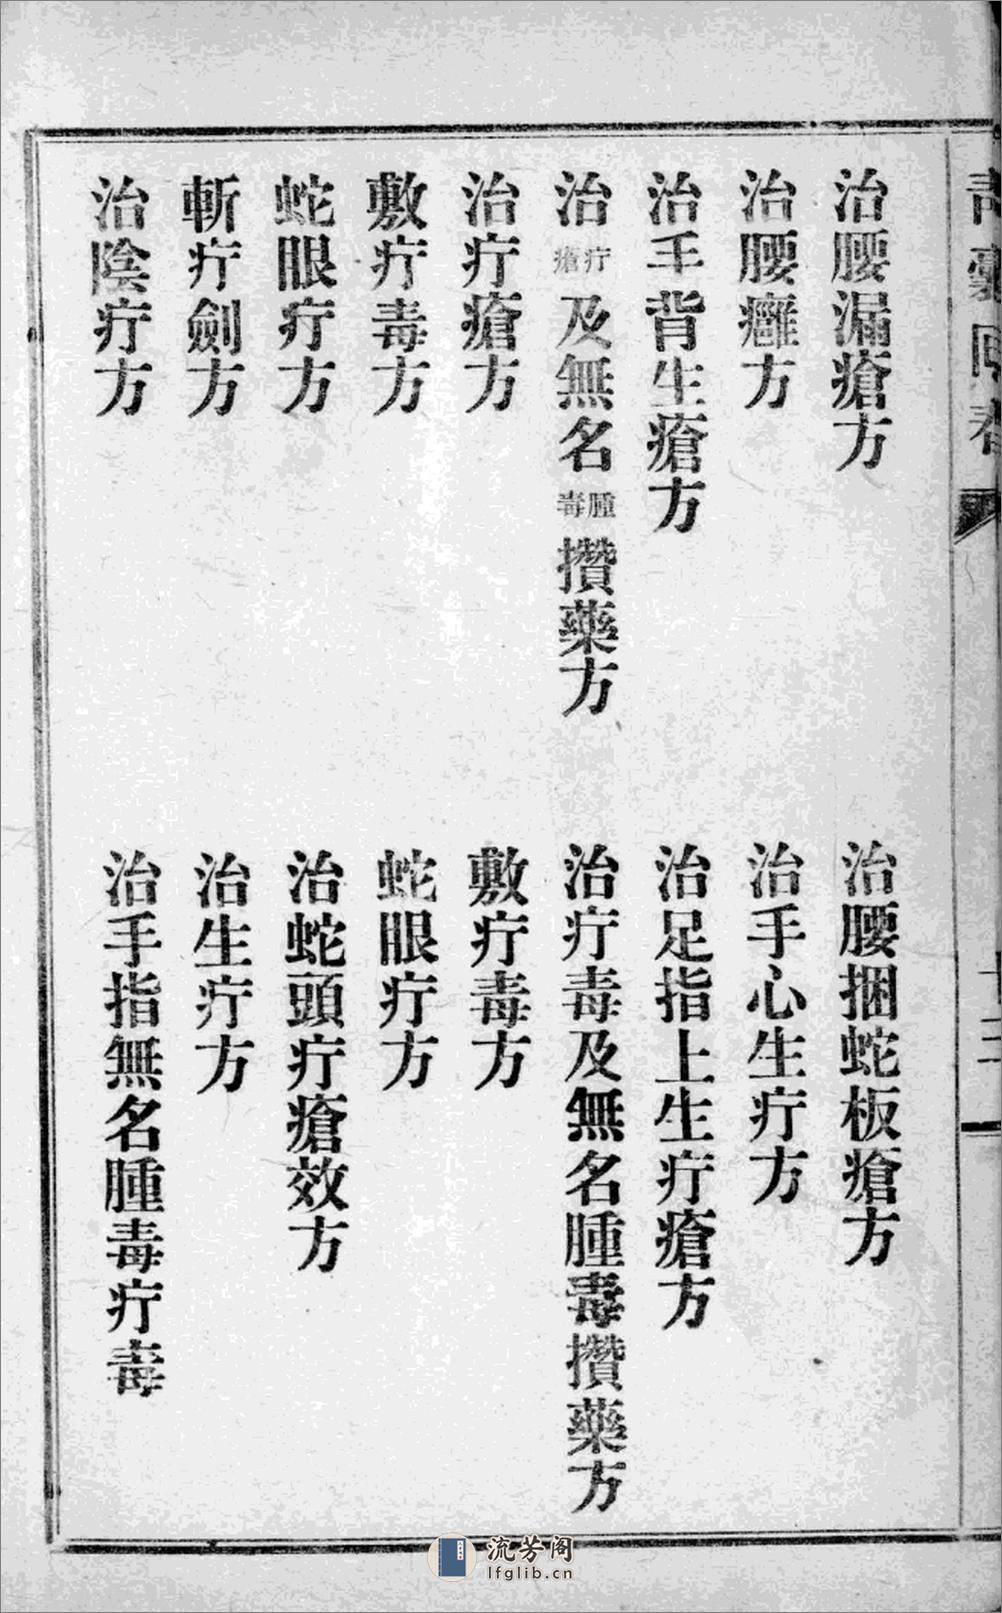 治腰漏瘡方
治腰捆蛇板瘡方
治腰癰方
治手心生疔方
治手背生瘡方
治足指上生疔瘡方
治疔瘡及無名腫毒攢藥方
治疔毒及無名腫毒攢藥方
治疔瘡方
敷疔毒方
敷疔毒方
蛇眼疔方
蛇眼疔方
治蛇頭疔瘡效方
斬疔劍方
治生疔方
治陰疔方
治手指無名腫毒疔毒
流芳阁
lfglib.cn